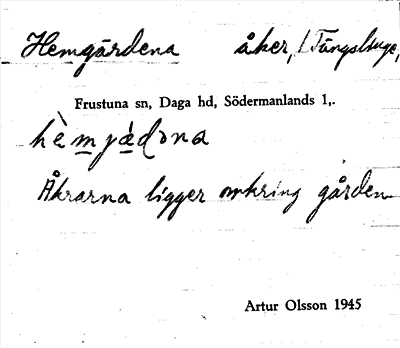 Hemgärdena åker,
Frustuna sn, Daga hd, Södermanlands l,.
Åkrarna ligger omkring gården
Artur Olsson 1945